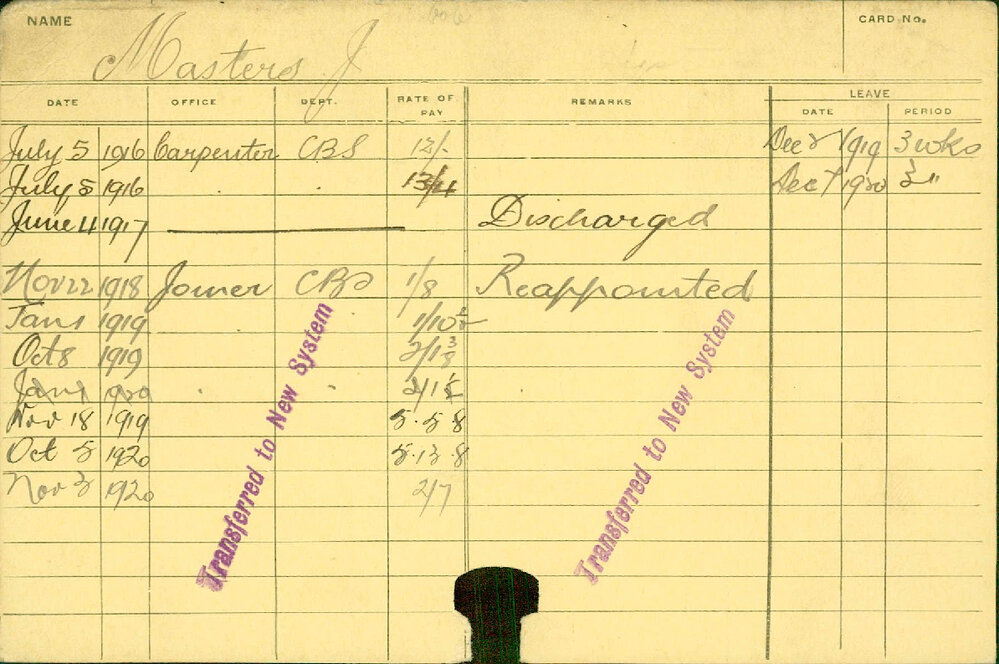 NAME CARD No.
Masters J
LEAVE
DATE OFFICE DEPT. RATE OF PAY REMARKS DATE PERIOD
July 5 1916 Carpenter CBS 12/- Dec 1919 3 wks
July 5 1916 . . 13/4 Dec 1920 3 "
June 4 1917 Discharged
Nov 22 1918 Joiner CBS 1/8 Reappointed
Jan 1 1919 1/10½
Oct 8 1919 2/1
Jan 1 1920 . . 2/1
Nov 18 1919 5.5.8
Oct 5 1920 5.13.8
Nov 3 1920 2/7
Transferred to New System
Transferred to New System